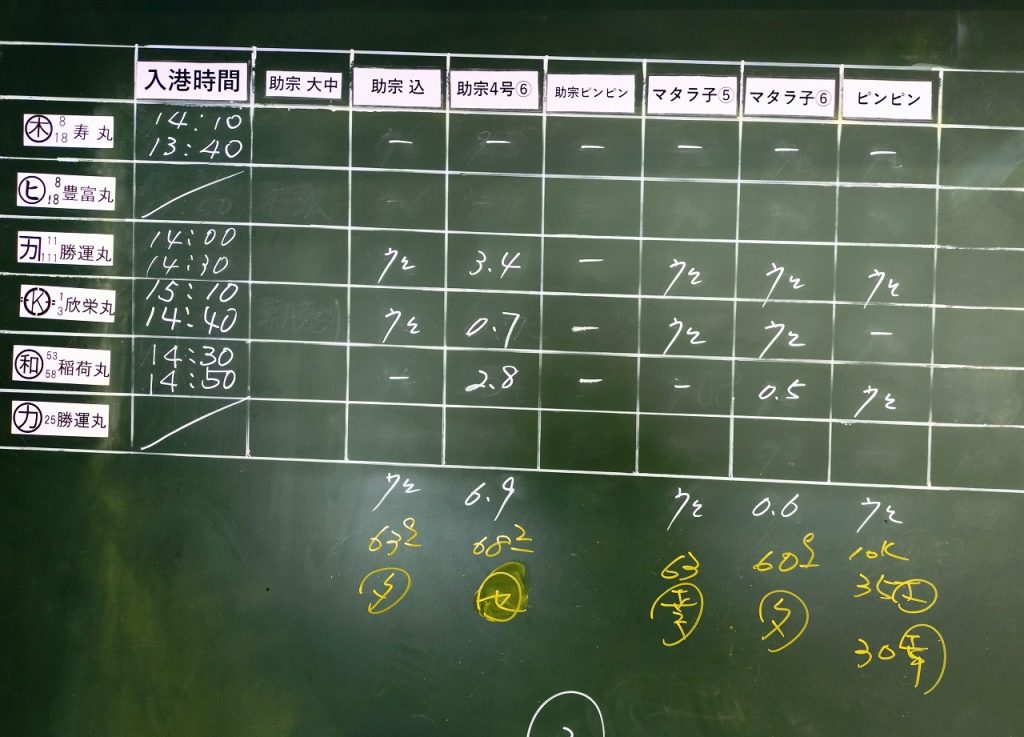 入港時間 助宗 大中 助宗 込 助宗4号⑥ 助宗ピンピン マタラ子⑤ マタラ子⑥ ピンピン
木 8 18 寿丸 14:10 13:40 ー ー ー ー ー ー
ヒ 8 18 豊富丸
カ 11 111 勝運丸 14:00 14:30 ウス 3.4 ー ウス ウス ウス
K 1 3 欣栄丸 15:10 14:40 ウス 0.7 ー ウス ウス ー
和 53 58 稲荷丸 14:30 14:50 ー 2.8 ー ー 0.5 ウス
カ 25 勝運丸
ウス 6.9 ウス 0.6 ウス
63 68 63 60 10K
タ セ タ 35
30